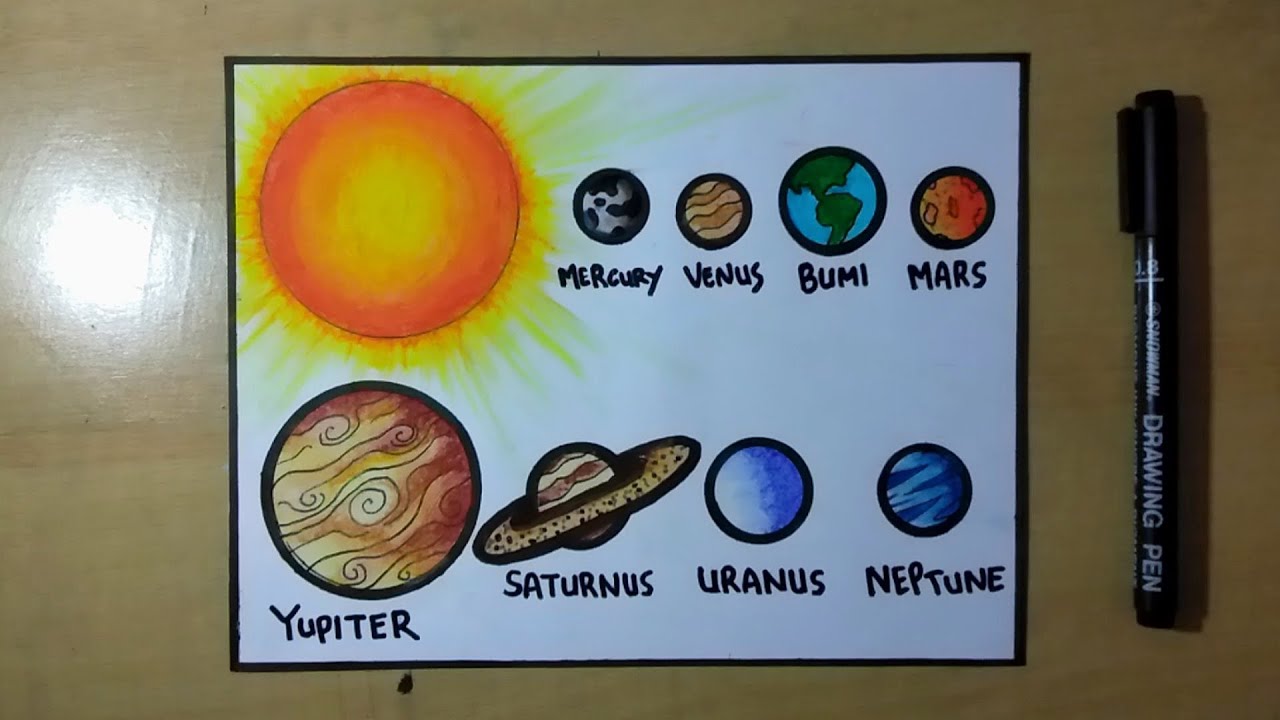 MERCURY VENUS BUMI MARS
YUPITER SATURNUS URANUS NEPTUNE
0.8 @SNOWMAN. DRAWING PEN